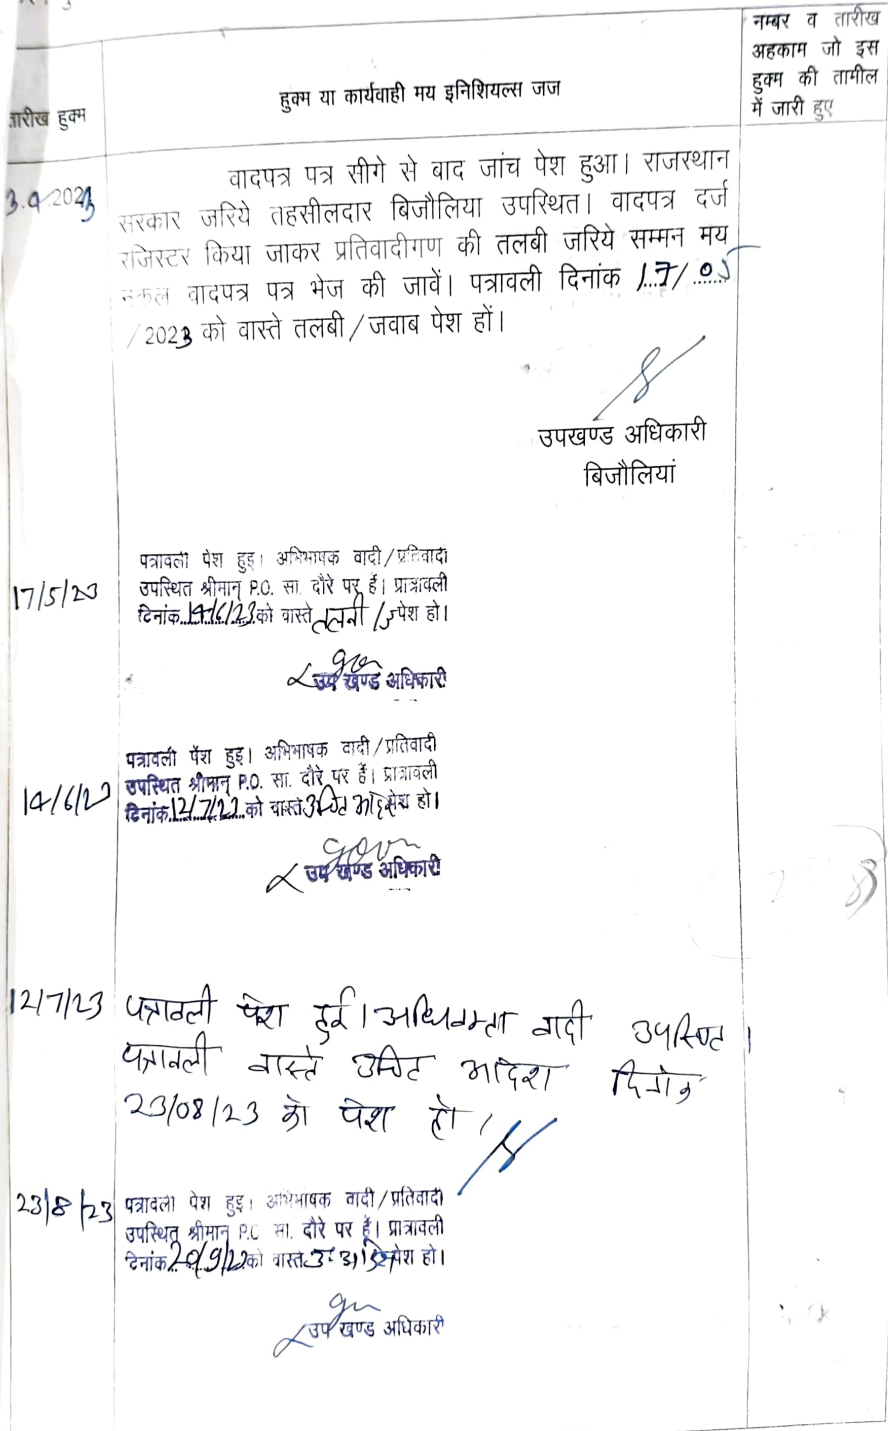 नम्बर व तारीख
अहकाम जो इस
हुक्म की तामील
में जारी हुए
हुक्म या कार्यवाही मय इनिशियल्स जज
तारीख हुक्म
वादपत्र पत्र सीगे से बाद जांच पेश हुआ। राजस्थान
सरकार जरिये तहसीलदार बिजौलिया उपस्थित। वादपत्र दर्ज
रजिस्टर किया जाकर प्रतिवादीगण की तलबी जरिये सम्मन मय
नकल वादपत्र पत्र भेज की जावें। पत्रावली दिनांक 17/05
/2023 को वास्ते तलबी/जवाब पेश हों।
उपखण्ड अधिकारी
बिजौलियां
17/5/23
पत्रावली पेश हुइ। अभिभाषक वादी/प्रतिवादी
उपस्थित श्रीमान् P.O. सा. दौरे पर हैं। प्रात्रावली
दिनांक 14/6/23 को वास्ते तलबी / पेश हो।
उप खण्ड अधिकारी
14/6/23
पत्रावली पेश हुइ। अभिभाषक वादी/प्रतिवादी
उपस्थित श्रीमान् P.O. सा. दौरे पर हैं। प्रात्रावली
दिनांक 12/7/23 को वास्ते उचित आदेश पेश हो।
उप खण्ड अधिकारी
12/7/23
पत्रावली पेश हुई। अधिवक्ता वादी उपस्थित।
पत्रावली वास्ते उचित आदेश दिनांक
23/08/23 को पेश हो।
23/8/23
पत्रावली पेश हुइ। अभिभाषक वादी/प्रतिवादी
उपस्थित श्रीमान् P.O. सा. दौरे पर हैं। प्रात्रावली
दिनांक 20/9/23 को वास्ते पेश हो।
उप खण्ड अधिकारी